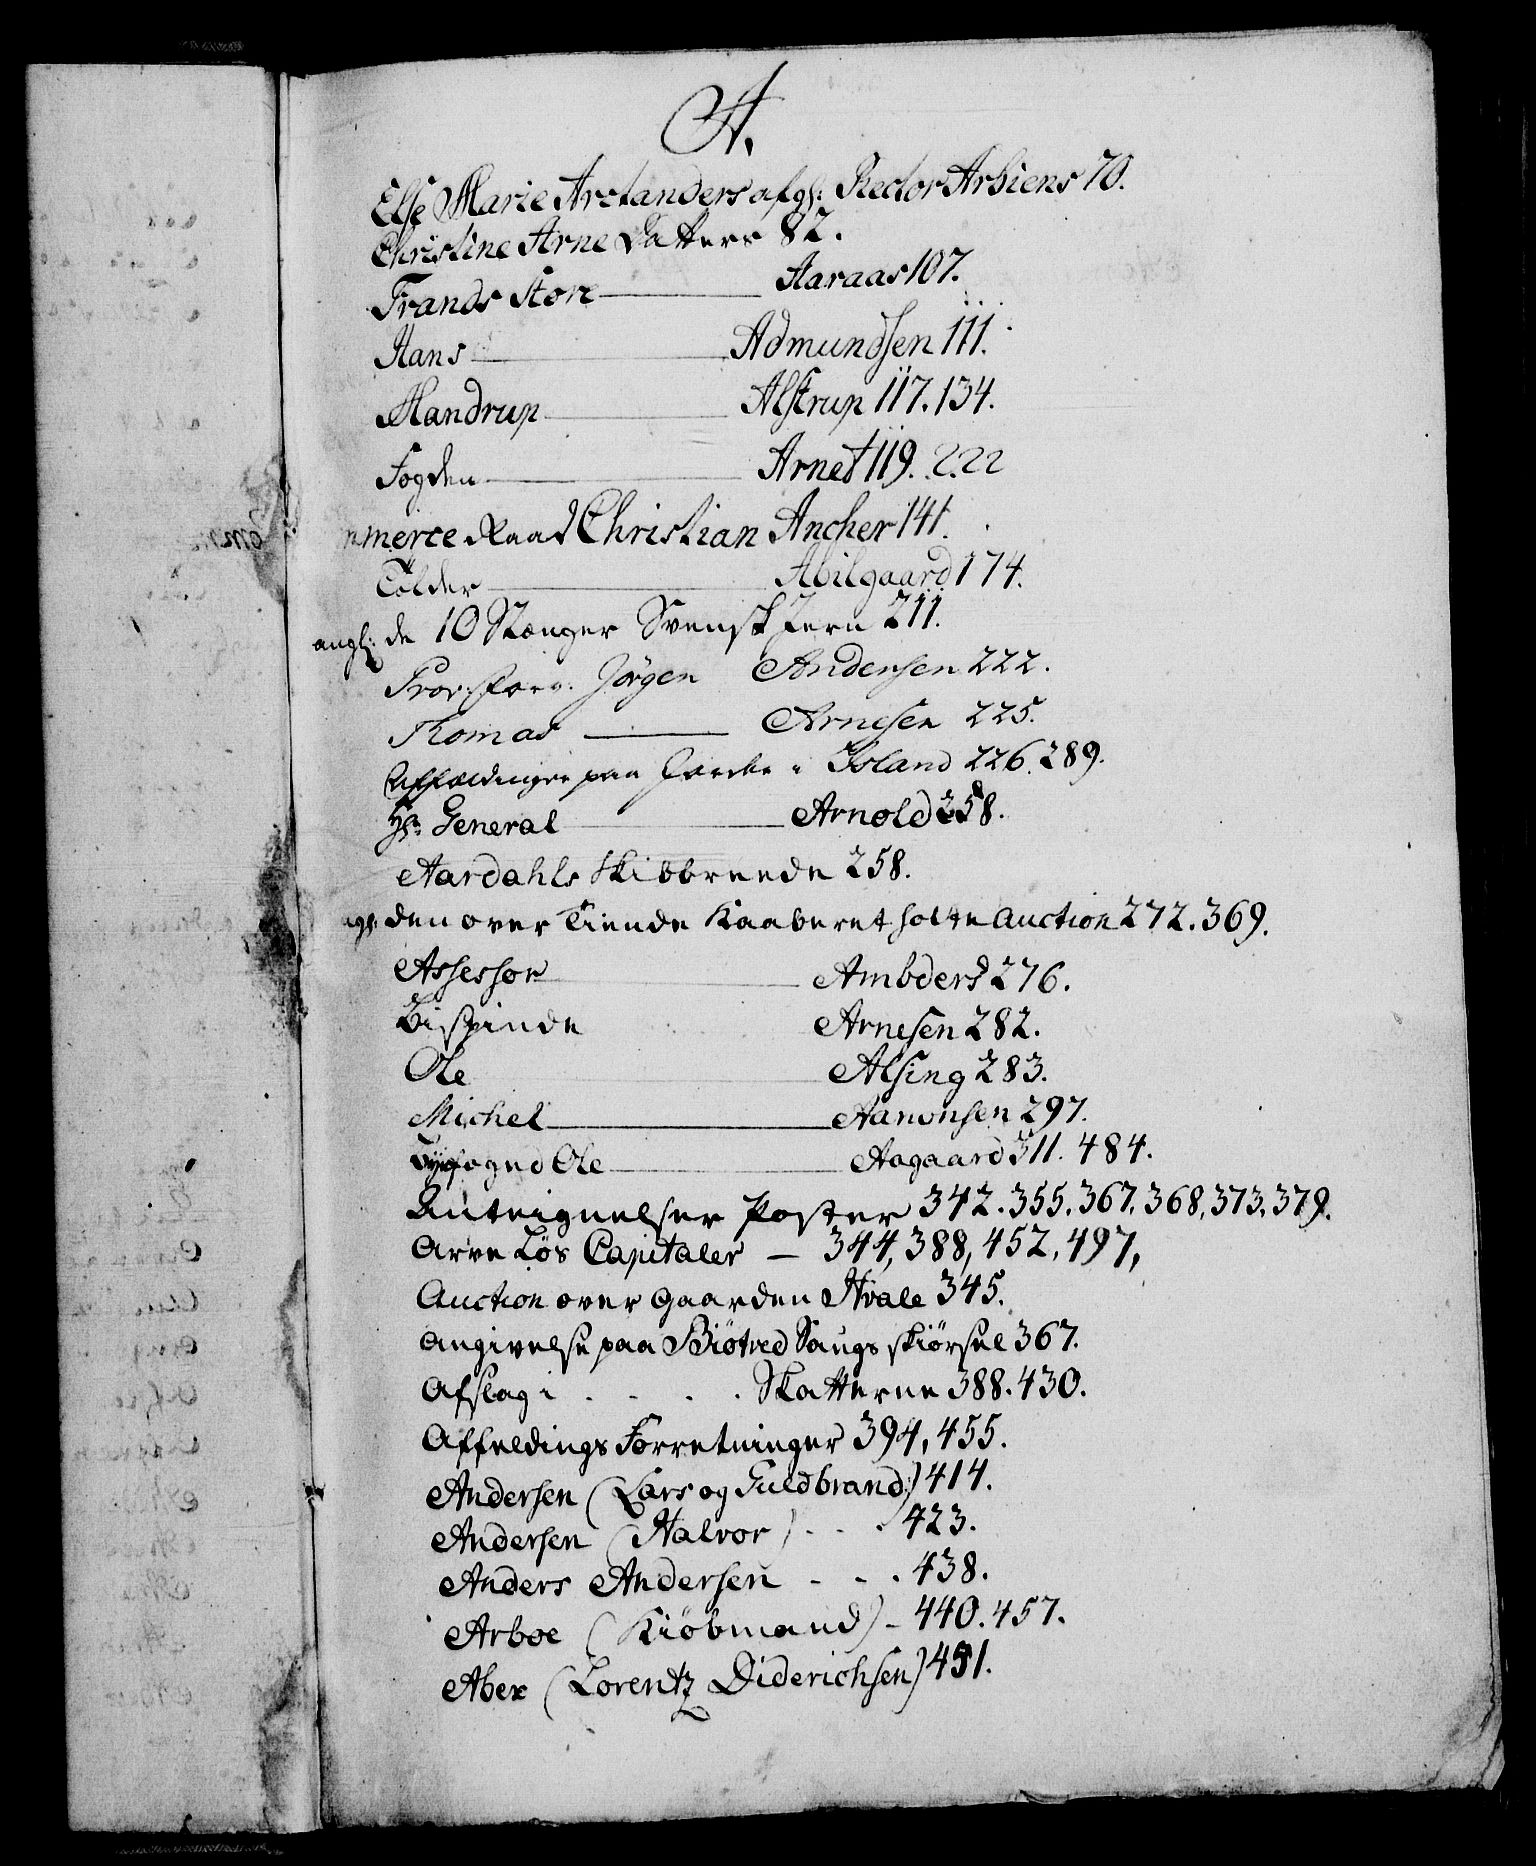 A.
Else Marie Arctanders afgl: Rector Arbiens 70.
Christine Arne Datters 82.
Frands Store Aaraas 107.
Hans Admundsen 111.
Mandrup Alstrup 117. 134.
Fogden Arnet 119. 222
merce Raad Christian Ancher 141.
Tolder Abilgaard 174.
angl: de 10 Stænger Svensk Jern 211.
Jörgen Andersen 222.
Thomas Arnesen 225.
paa i Island 226. 289.
Hr General Arnold 258.
Aardahls Skibbreede 258.
den over Tiende Kaaberet holte Auction 272. 369.
Assessor Ambders 276.
Bispinde Arnesen 282.
Ole Alsing 283.
Michel Aanonsen 297.
Byefoged Ole Aagaard 311. 484.
Antegnelser Poster 342. 355. 367. 368, 373, 379.
Arve Løs Capitaler – 344, 388, 452, 497,
Auction over Gaarden Hvale 345.
Angivelse paa Saugs skiørsel 367.
Afslag i . . . . Skatterne 388. 430.
Affeldings Forretninger 394, 455.
Andersen (Lars og Guldbrand:) 414.
Andersen (Halvor) . . . 423.
Anders Andersen - - . 438.
Arboe (Kiöbmand) - 440. 457.
Aber (Lorentz Diderichsen) 451.